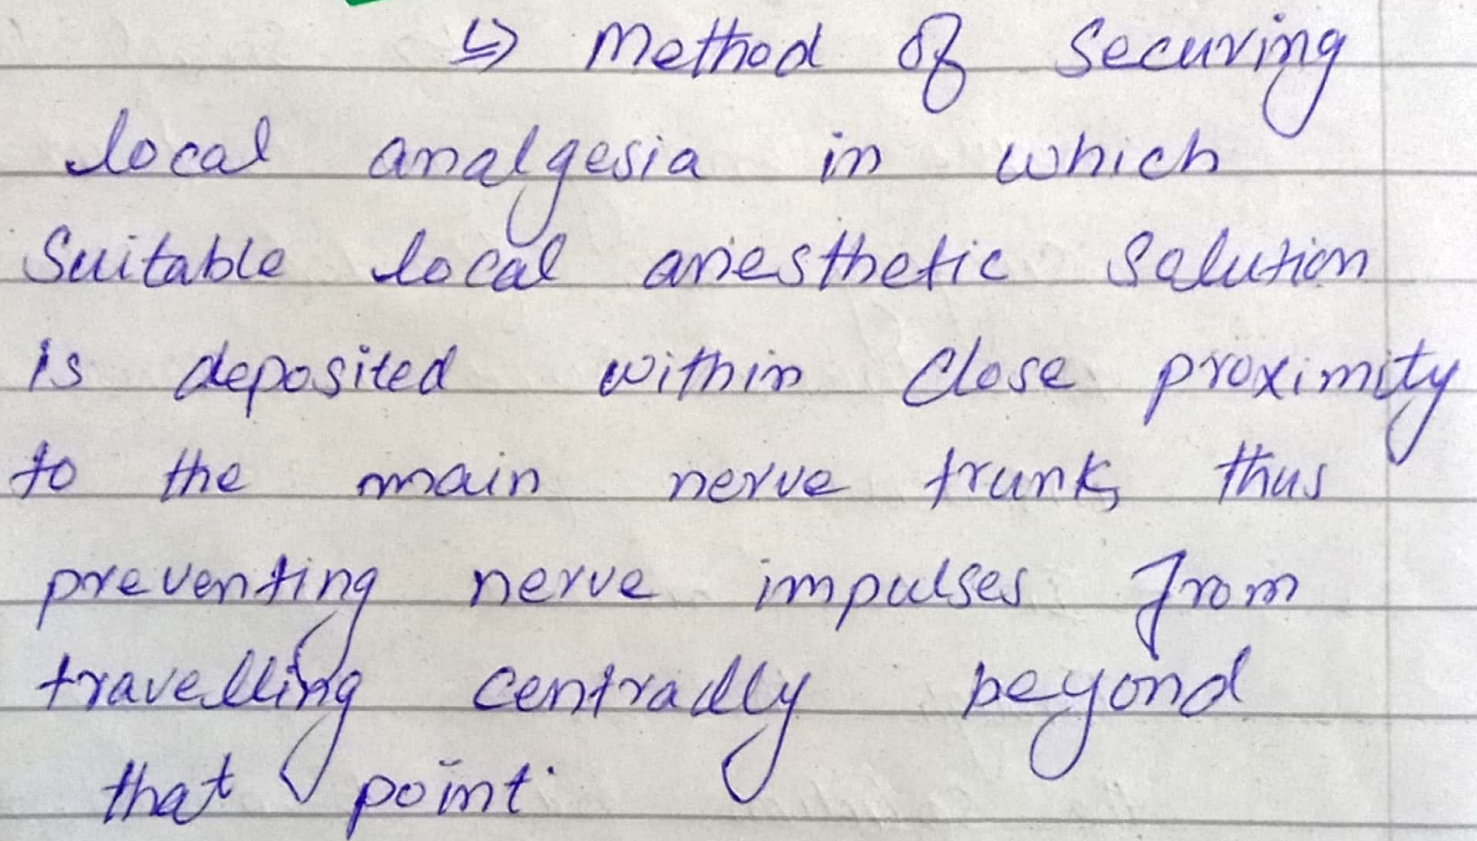 ↳ Method of Securing
local analgesia in which
Suitable local anesthetic Solution
is deposited within Close proximity
to the main nerve trunk, thus
preventing nerve impulses from
travelling centrally beyond
that point.